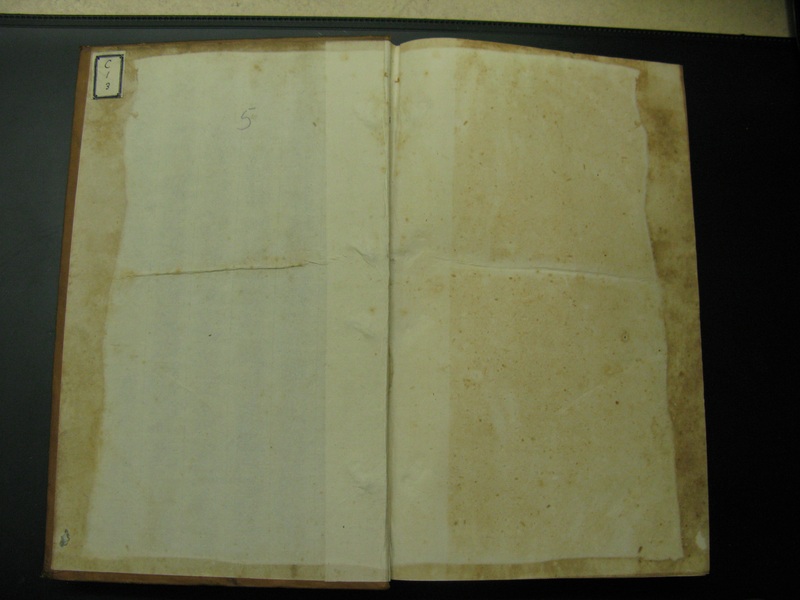 C
1
3
5